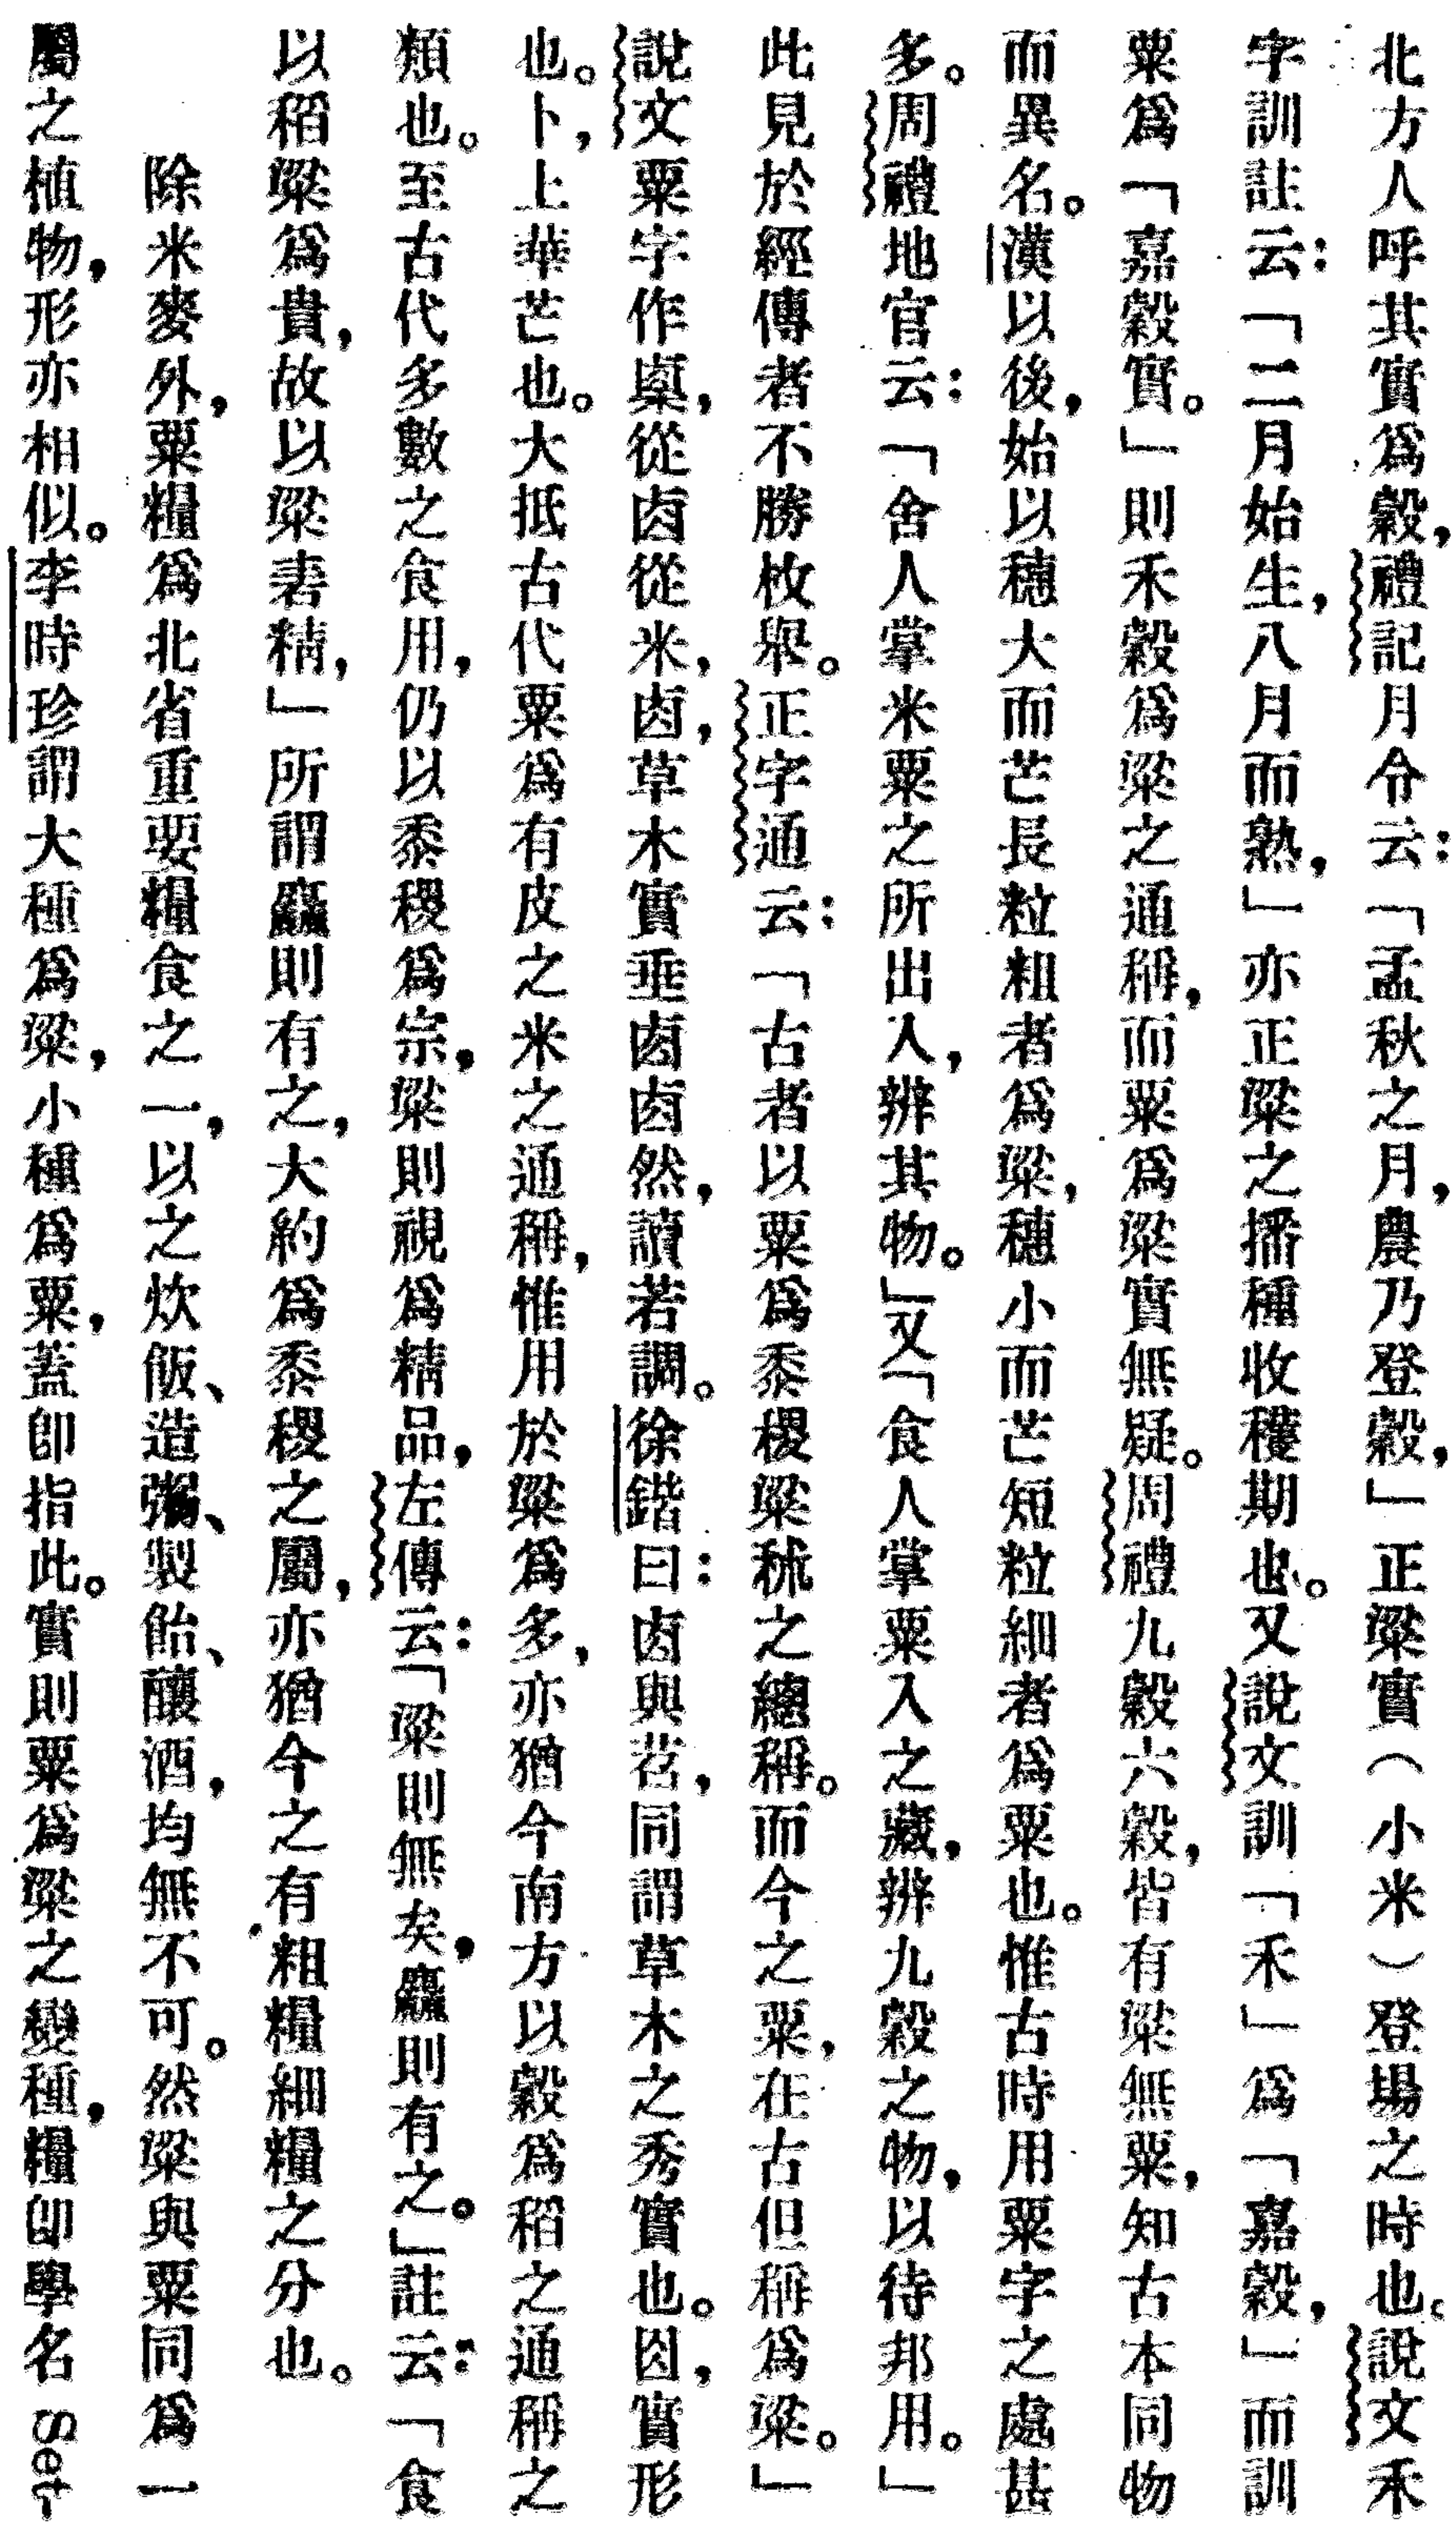 北方人呼其實爲穀，禮記月令云：「孟秋之月，農乃登穀，」正粱實（小米）登場之時也。說文禾
字訓註云：「二月始生，八月而熟，」亦正粱之播種收穫期也。又說文訓「禾」爲「嘉穀，」而訓
粟爲「嘉穀實。」則禾穀爲粱之通稱，而粟爲粱實無疑。周禮九穀六穀，皆有粱無粟，知古本同物
而異名。漢以後，始以穗大而芒長粒粗者爲粱，穗小而芒短粒細者爲粟也。惟古時用粟字之處甚
多。周禮地官云：「舍人掌米粟之所出入，辨其物。」又「食人掌粟入之藏，辨九穀之物，以待邦用。」
此見於經傳者不勝枚舉。正字通云：「古者以粟爲黍稷粱秫之總稱。而今之粟，在古但稱爲粱。」
說文粟字作㮚，從卤從米，卤，草木實垂卤卤然，讀若調。徐鍇曰：卤與苕，同謂草木之秀實也。因，實形
也。卜，上華芒也。大抵古代粟爲有皮之米之通稱，惟用於粱爲多，亦猶今南方以穀爲稻之通稱之
類也。至古代多數之食用，仍以黍稷爲宗，粱則視爲精品，左傳云：「粱則無矣，麤則有之。」註云：「食
以稻粱爲貴，故以粱表精，」所謂麤則有之，大約爲黍稷之屬，亦猶今之有粗糧細糧之分也。
除米麥外，粟糧爲北省重要糧食之一，以之炊飯、造粥、製飴、釀酒，均無不可。然粱與粟同爲一
屬之植物，形亦相似。李時珍謂大種爲粱，小種爲粟，蓋卽指此。實則粟爲粱之變種，糧卽學名 Set-